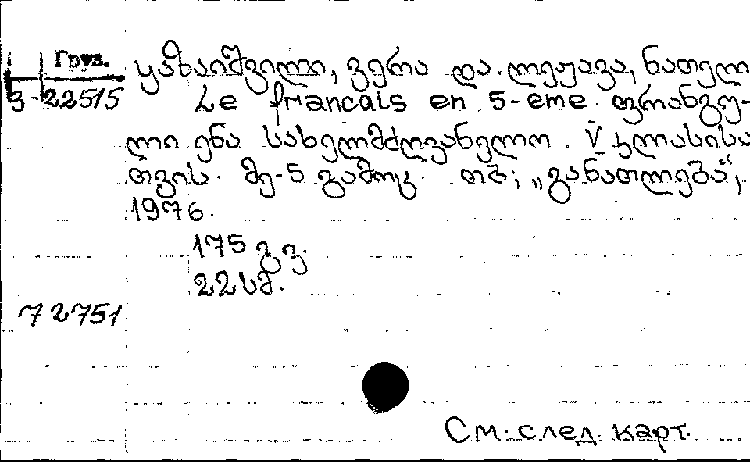 Груз.
3-22515
ყაზაიშვილი, ვერა და ლეჟავა, ნათელ
Le francais en 5-eme. ფრანგუ-
ლი ენა სახელმძღვანელო. V კლასისა
თვის. მე-5 გამოც. თბ; „განათლება“,
1976.
175 გვ.
22სმ.
72751
См. след. карт.